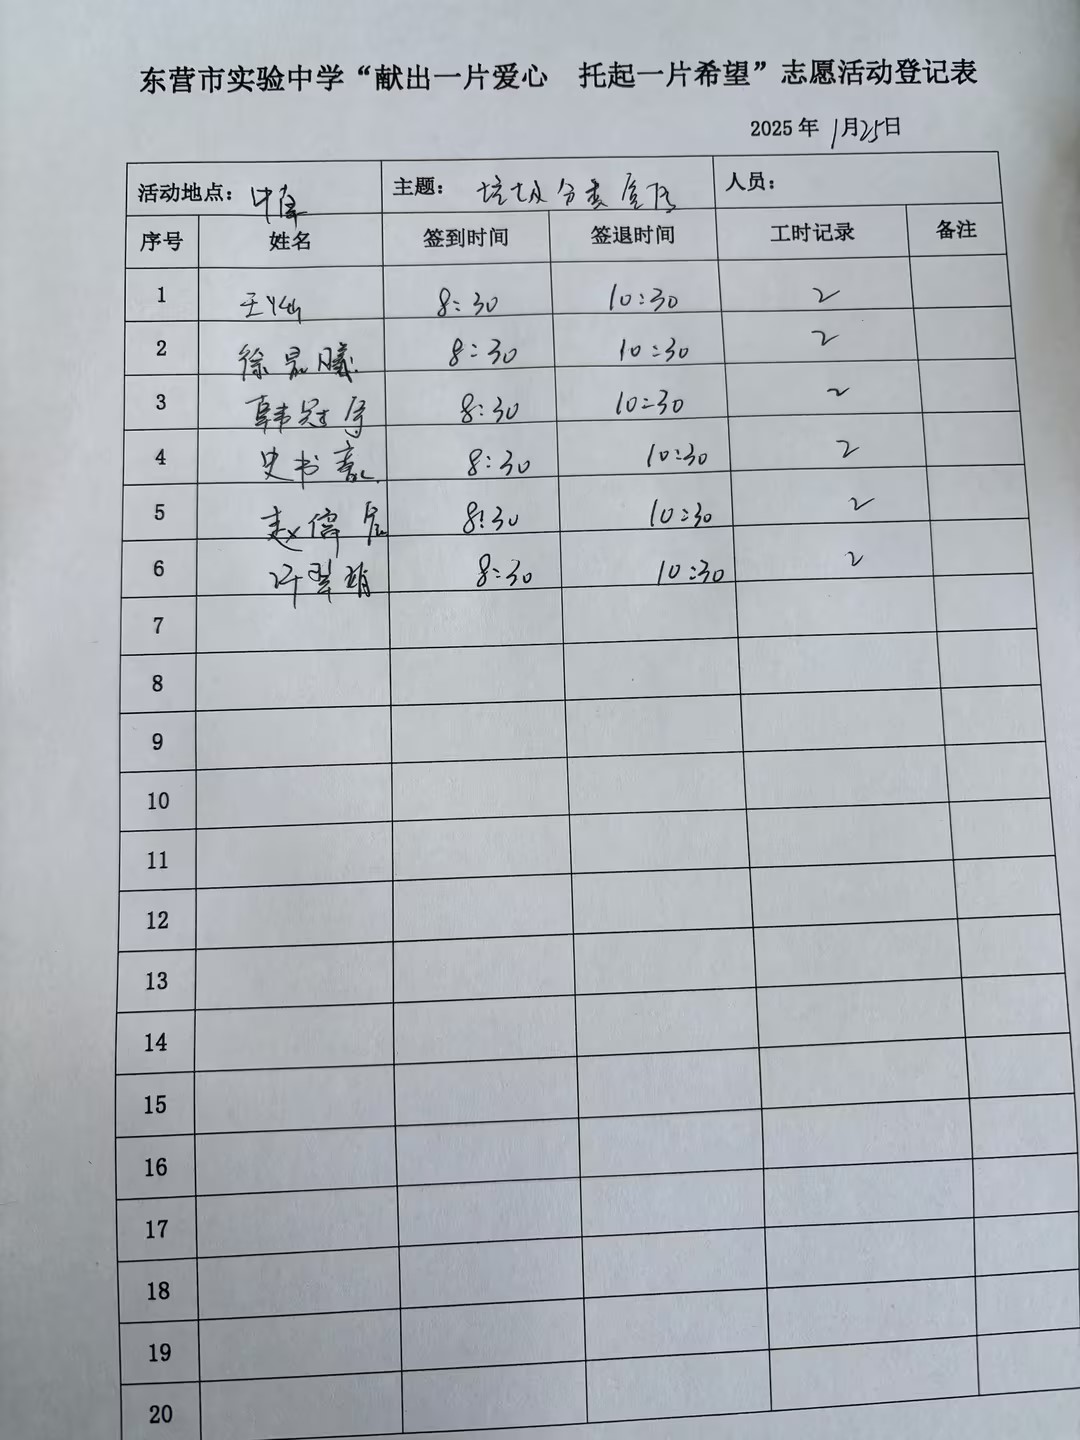 东营市实验中学“献出一片爱心 托起一片希望”志愿活动登记表
2025 年 1月25日
活动地点: 主题: 垃圾分类宣传 人员:
序号 姓名 签到时间 签退时间 工时记录 备注
1 王 8:30 10:30 2
2 徐 曦 8:30 10:30 2
3 韩冠 8:30 10:30 2
4 史书 8:30 10:30 2
5 赵 8:30 10:30 2
6 许翠 8:30 10:30 2
7
8
9
10
11
12
13
14
15
16
17
18
19
20